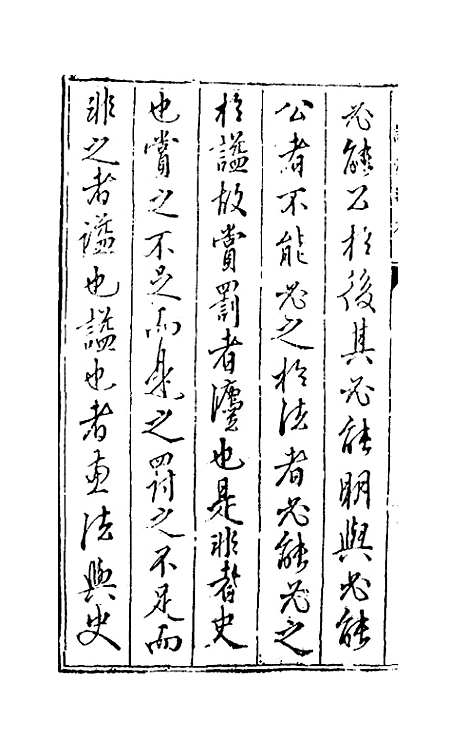 必能公於後其必能明與必能
公者不能必之於法者必能必之
於謚故賞罰者灋也是非者史
也賞之不足而是之罰之不足而
非之者謚也謚也者兼法與史